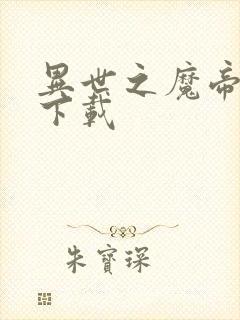 異世之魔帝
下載
朱寶琛